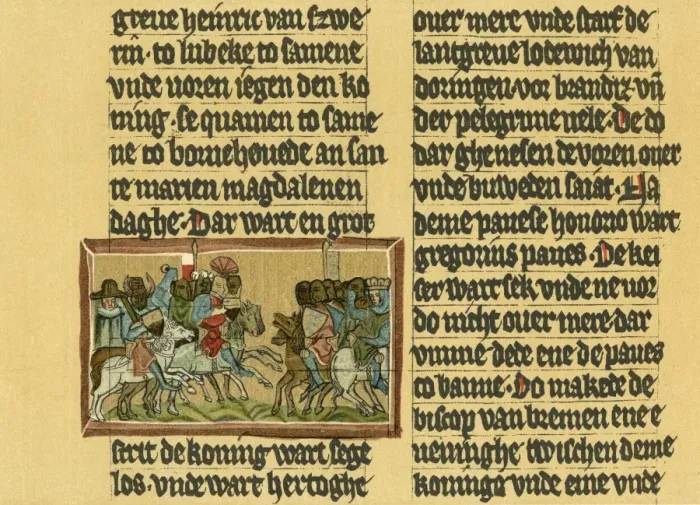 greue heinric van szwe
rin· to lubeke to samene
vnde uoren iegen den ko
ning· se quamen to same
ne to bornehouede an san
te marien magdalenen
daghe· Dar wart en grot
strit de koning wart sege
los· vnde wart hertoghe
ouer mere vnde starf de
lantgreue lodewich van
doringen· vor brandiz· vn̄
der pelegrime uele· De do
dar ghenesen de voren ouer
vnde buweden saiat· Na
deme pauese honorio wart
gregorius paues· De kei
ser wart sek vnde ne uor
do nicht ouer mere· dar
vmme dede ene de paues
to banne· Do makede de
biscop van bremen ene e
ueninghe twischen deme
koninge vnde eme vnde